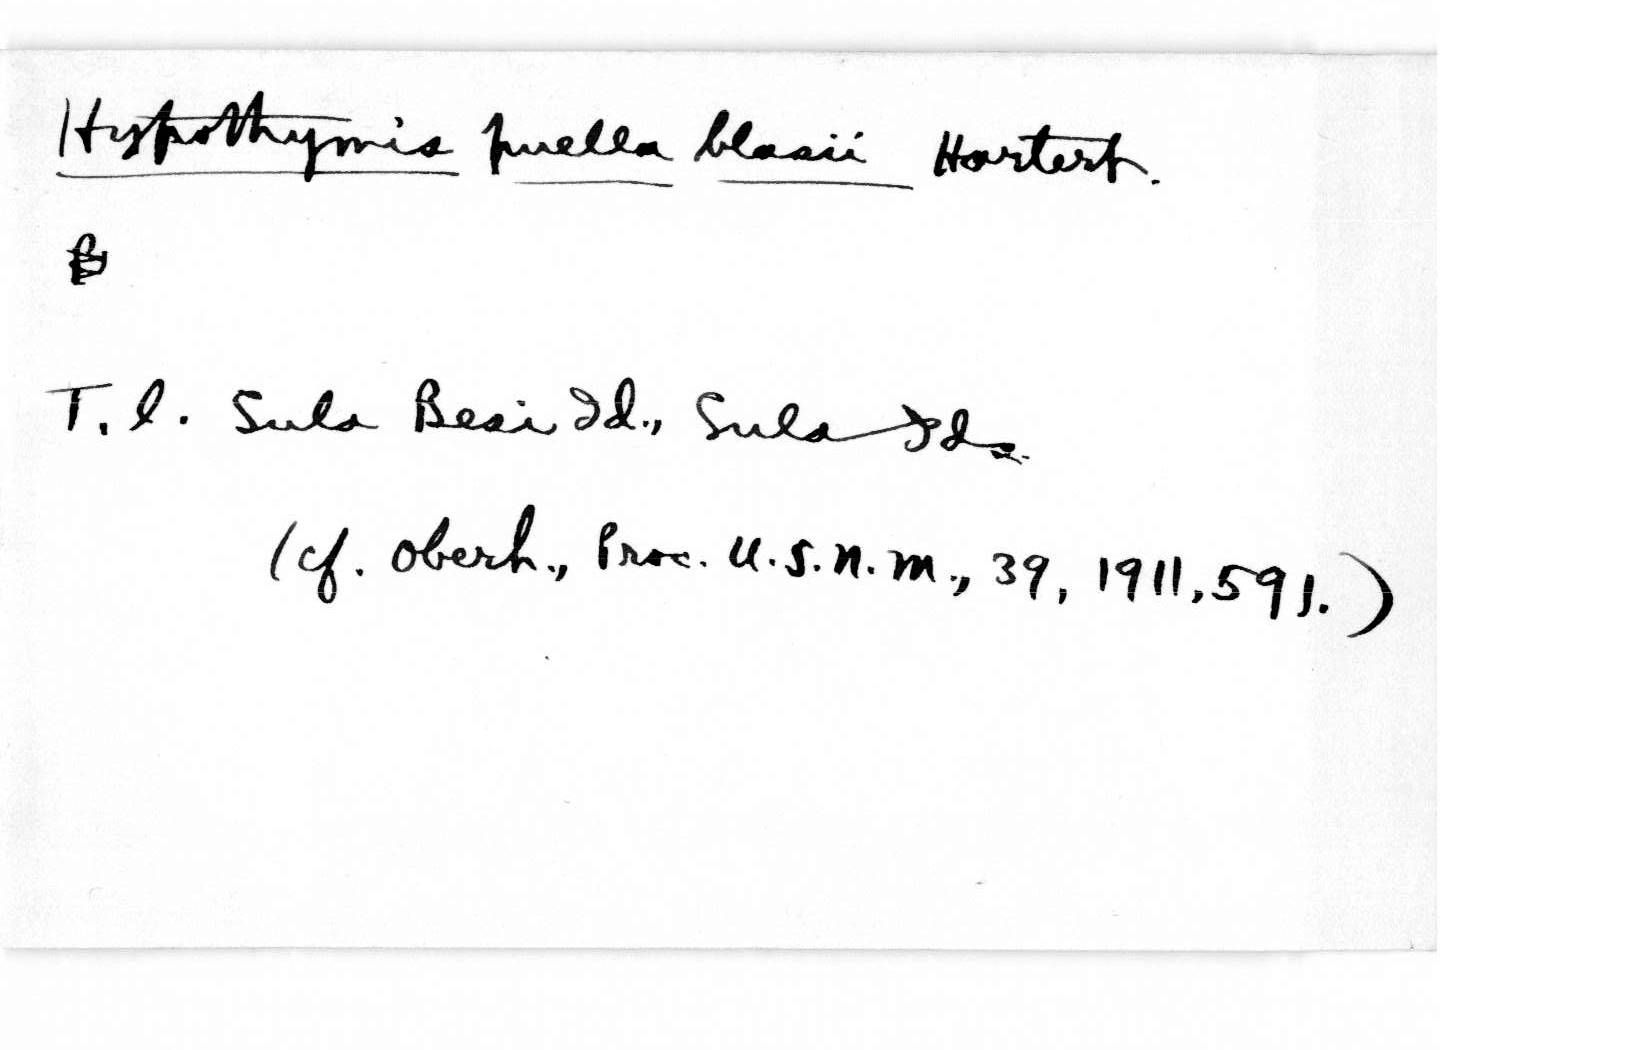 Hypothymis puella blasii Hartert.
B
T. l. Sula Besi Id., Sula Ids.
(cf. Oberh., Proc. U.S.N.M., 39, 1911, 591.)